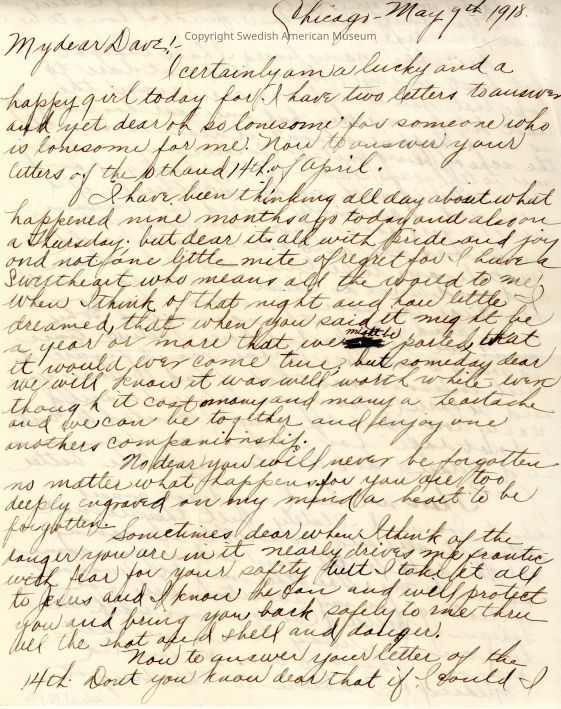 Chicago - May 9th 1918.
Copyright Swedish American Museum
My dear Dave! -
I certainly am a lucky and a
happy girl today for I have two letters to answer
and yet dear oh so lonesome for someone who
is lonesome for me. Now to answer your
letters of the and 14th. of April.
I have been thinking all day about what
happened nine months ago today and also on
a Thursday. but dear its all with pride and joy
and not one little mite of regret for I have a
Sweetheart who means all the world to me!
When I think of that night and how little I
dreamed, that when you said it might be
a year or more that we might be parted, that
it would ever come true; but someday dear
we will know it was well worth while even
though it cost many and many a heartache
and we can be together and enjoy one
anothers companionship.
No dear you will never be forgotten
no matter what happens for you are too
deeply engraved on my mind a heart to be
forgotten.
Sometimes dear when I think of the
danger you are in it nearly drives me frantic
with fear for your safety but I take it all
to Jesus and I know he can and will protect
you and bring you back safely to me thru
all the shot and shell and danger.
Now to answer your letter of the
14th. Dont you know dear that if I could I